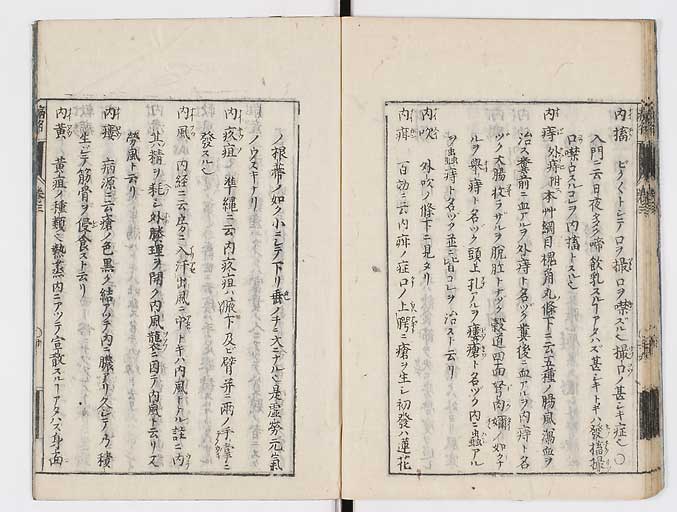 内搐 ビクビクトシテ口ヲ撮口ヲ噤ズル也撮口ノ甚シキ症也○
入門ニ云日夜多ク啼飲乳スルコアタハズ甚シキトキハ發搐撮
口噤口スルコレヲ内搐トスル也
内痔 外痔附本艸綱目槐角丸條下ニ云五種ノ腸風瀉血ヲ
治ス糞前ニ血アルヲ外痔ト名ヅク糞後ニ血アルヲ内痔ト名
ヅク大腸收ラザルヲ脱肛トナヅク穀道四面胬肉嬭ノ如クナ
ルヲ舉痔ト名ヅク頭上孔アルヲ瘻瘡ト名ヅク内ニ蟲アル
ヲ蟲痔ト名ヅク並ニ皆コレヲ治スト云リ
内吹 外吹ノ條下ニ見タリ
内疳 百効ニ云内疳ノ症口ノ上腭ニ瘡ヲ生シ初發ハ蓮花
ノ根蔕ノ如ク小ニシテ下リ垂ノチニ大ニナル也是虚勞元氣
ノウスキナリ
内疚疽 準縄ニ云内疚疽ハ腋下及ビ臂并ニ兩ノ手掌ニ
發スル也
内風 内経ニ云房ニ入汗出風ニ中トキハ内風トナル註ニ内
其精ヲ耗シ外腠理ヲ開ク内風襲ニ因テ内風ト云リ又
勞風ト云リ
内癭 病源ニ云瘡ノ色黒ク結アッテ内ニ膿アリ久シテ乃積
生シテ筋骨ヲ侵食スト云リ
内黄 黄疸ノ種類也熱蒸内ニアツテ宣散スルコアタハズ身面